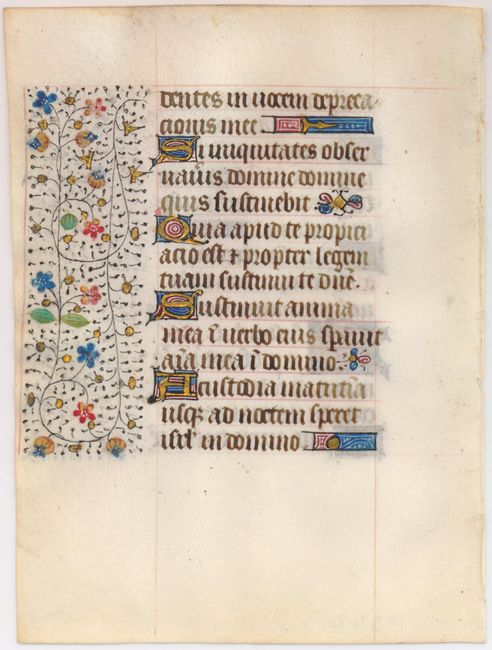 dentes in vocem depreca
cionis mee
Si iniquitates obser
vaveris domine domine
quis sustinebit
Quia apud te propici
acio est & propter legem
tuam sustinui te dñe.
Sustinuit anima
mea ĩ verbo eius speravit
aĩa mea ĩ domino.
A custodia matutĩa
usqʒ ad noctem speret
isrl̃ in domino